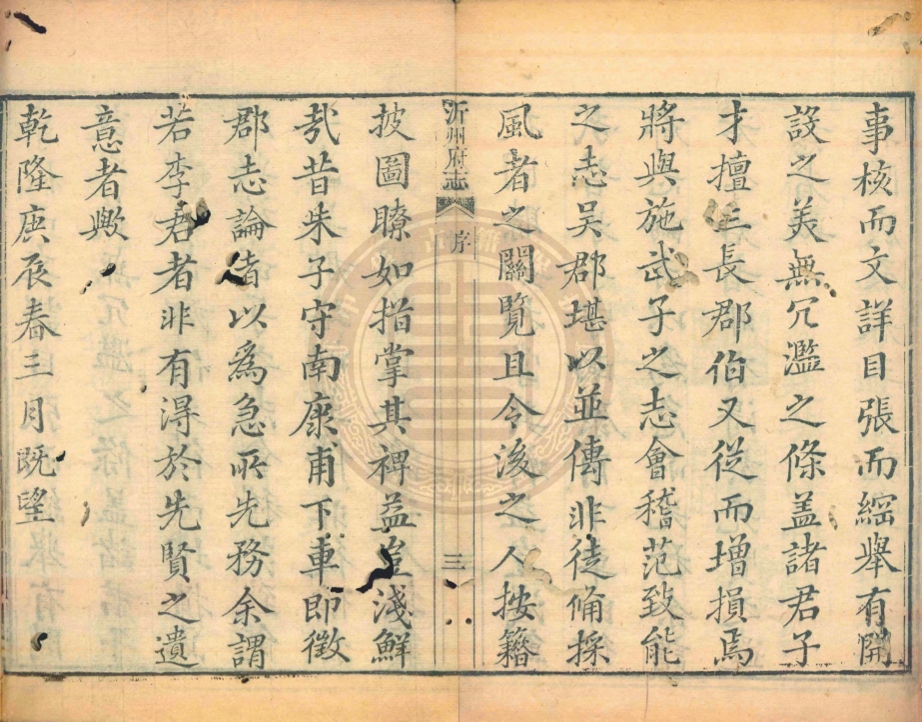 事核而文詳目張而綱舉有開
設之美無冗濫之條盖諸君子
才擅三長郡伯又從而增損焉
將與施武子之志會稽范致能
之志吳郡堪以並傳非徒俻採
風者之關覽且令後之人按籍
沂州府志
序
三
披圖瞭如指掌其裨益豈淺鮮
㦲昔朱子守南康甫下車即徵
郡志論者以爲急所先務余謂
若李君者非有淂於先賢之遺
意者歟
乾隆庚辰春三月既望